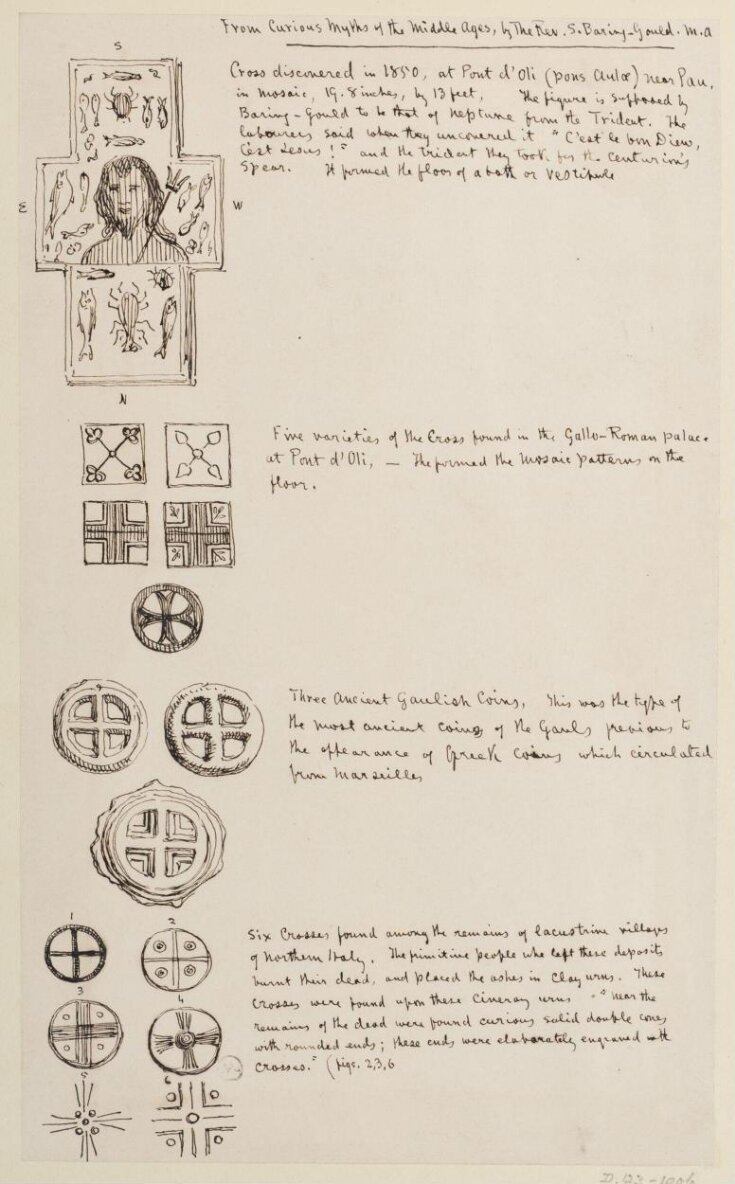 From Curious Myths of the Middle Ages, by The Rev. S. Baring-Gould. M.A
S
Cross discovered in 1850, at Pont d'Oli (pons Aulæ) near Pau,
in mosaic, 19.8 inches, by 13 feet, The figure is supposed by
Baring-Gould to be that of Neptune from the Trident. The
labourers said when they uncovered it "C'est le bon Dieu,
C'est Jesus!" and the trident they took for the Centurion's
Spear. It formed the floor of a bath or vestibule
E
W
N
Five varieties of the Cross found in the Gallo-Roman palace
at Pont d'Oli, — The formed the mosaic patterns on the
floor.
Three Ancient Gaulish Coins, This was the type of
the most ancient coins of the Gauls previous to
the appearance of Greek coins which circulated
from Marseilles
Six Crosses found among the remains of lacustrine villages
of Northern Italy. The primitive people who left these deposits
burnt their dead, and placed the ashes in clay urns. These
crosses were found upon these cinerary urns "near the
remains of the dead were found curious solid double cones
with rounded ends; these ends were elaborately engraved with
crosses." (figs. 2,3,6
1
2
3
4
5
6